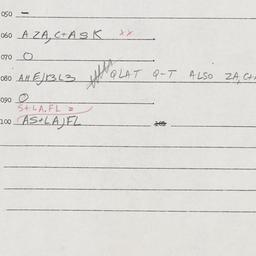 050 –
060 AZA, C+ASK xx
070 O
080 AHE/13L3 QLAT Q-T ALSO ZA, C+
090 O
S+LA, FL =
100 AS+LA/FL